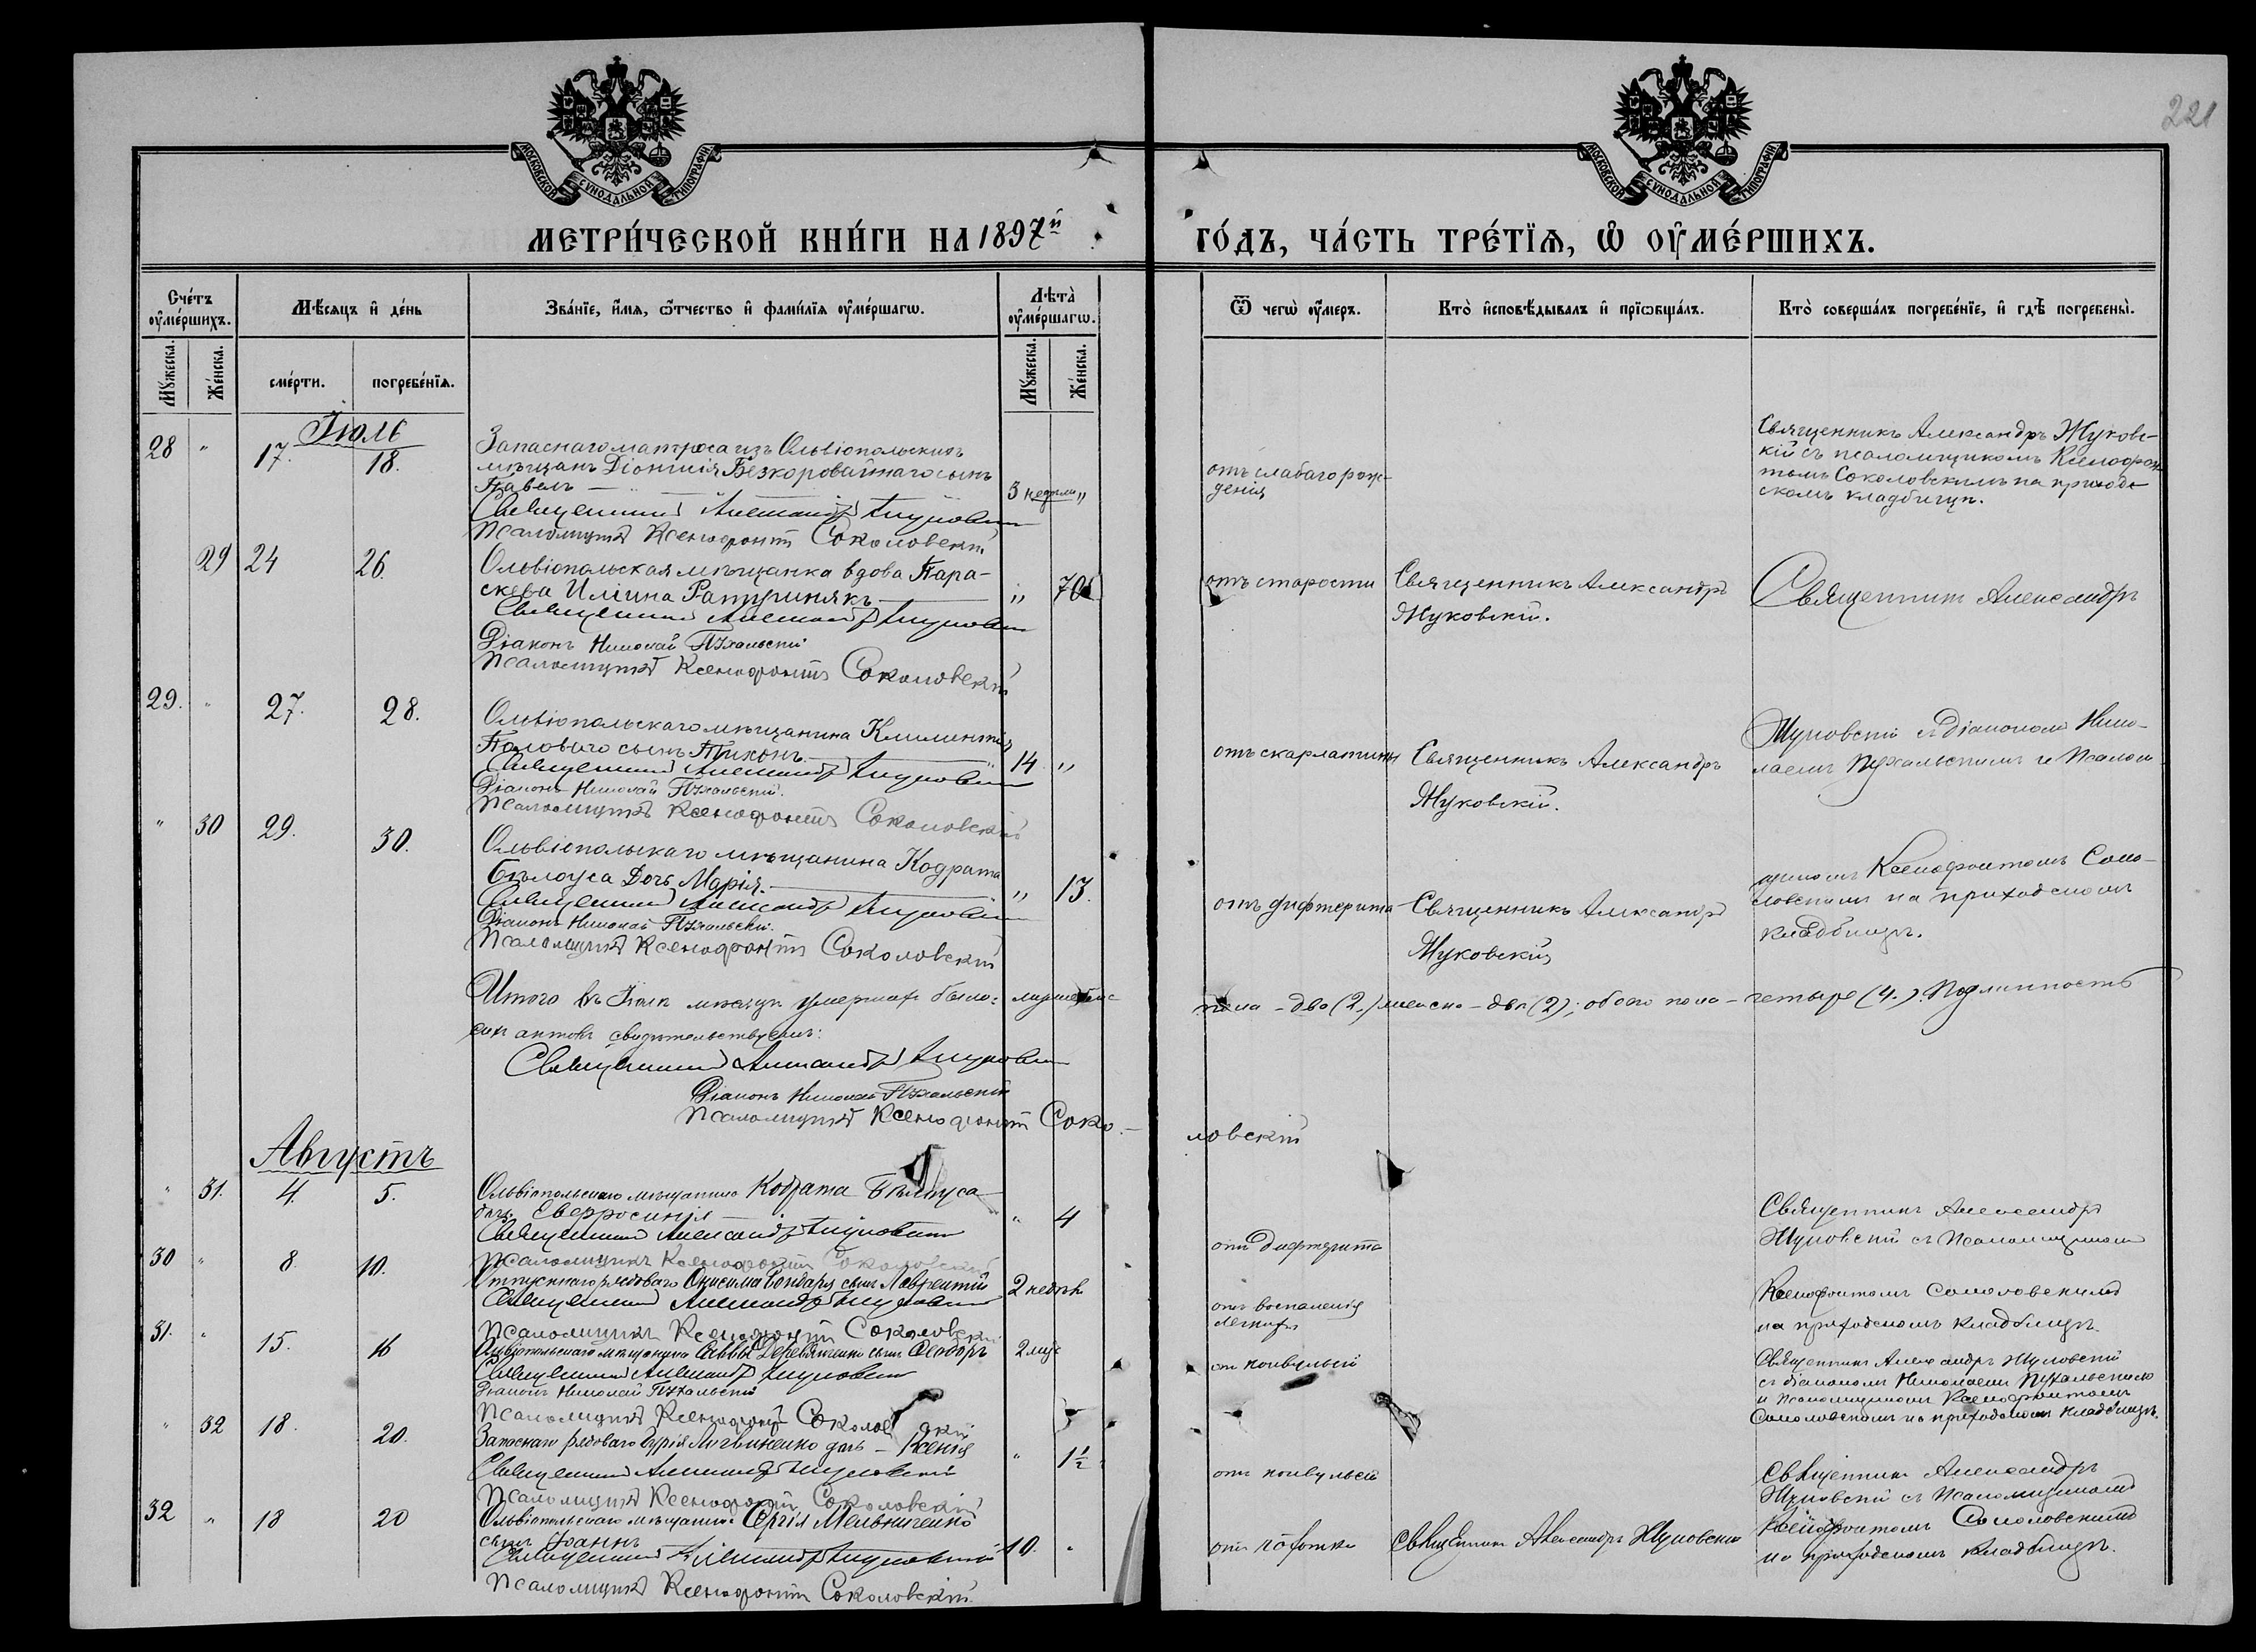 221
МОСКОВСКОЙ СѴНОДАЛЬНОЙ ТИПОГРАФІИ
МОСКОВСКОЙ СѴНОДАЛЬНОЙ ТИПОГРАФІИ
МЕТРИ́ЧЕСКОЙ КНИ́ГИ НА 1897й
ГО́ДЪ, ЧА́СТЬ ТРЕ́ТЇѦ, Ѡ҆ ОУ҆МЕ́РШИХЪ.
Сче́тъ оу҆ме́ршихъ.
Мѣ́сяцъ и҆ де́нь
Зва́нїе, и҆́мѧ, ѻ҆́тчество и҆ фами́лїѧ оу҆ме́ршагѡ.
Лѣ́та оу҆ме́ршагѡ.
Ѿ чегѡ̀ оу҆́меръ.
Кто̀ и҆сповѣ́дывалъ и҆ прїѡбща́лъ.
Кто̀ соверша́лъ погребе́нїе, и҆ гдѣ̀ погребены̀.
Мꙋ́жеска.
Же́нска.
сме́рти.
погребе́нїѧ.
Мꙋ́жеска.
Же́нска.
Іюль
28 " 17. 18.
Запаснаго матроса изъ Ольвіопольскихъ
мѣщанъ Діонисія Безкоровайнаго сынъ
Павелъ — 3 недѣли "
Священникъ Александръ Жуковскій
Псаломщикъ Ксенофонтъ Соколовскій
отъ слабаго рож-
денія
Священникъ Александръ Жуковс-
кій съ псаломщикомъ Ксенофон-
томъ Соколовскимъ на приход-
скомъ кладбищѣ.
29 24 26.
Ольвіопольская мѣщанка вдова Пара-
скева Иліина Ратушнякъ — " 70
Священникъ Александръ Жуковскій
Діаконъ Николай Пухальскій
Псаломщикъ Ксенофонтъ Соколовскій
отъ старости
Священникъ Александръ
Жуковскій.
Священникъ Александръ
29. " 27. 28.
Ольвіопольскаго мѣщанина Климентія
Половаго сынъ Тихонъ — 14 "
Священникъ Александръ Жуковскій
Діаконъ Николай Пухальскій.
Псаломщикъ Ксенофонтъ Соколовскій
отъ скарлатины
Священникъ Александръ
Жуковскій.
Жуковскій съ діакономъ Нико-
лаемъ Пухальскимъ и Псалом-
" 30 29. 30.
Ольвіопольскаго мѣщанина Кодрата
Бѣлоуса дочь Марія. — " 13.
Священникъ Александръ Жуковскій
Діаконъ Николай Пухальскій.
Псаломщикъ Ксенофонтъ Соколовскій
отъ дифтерита
Священникъ Александръ
Жуковскій
щикомъ Ксенофонтомъ Соко-
ловскимъ на приходскомъ
кладбищѣ.
Итого въ Іюлѣ мѣсяцѣ умершихъ было: мужеска
пола — два (2.) женска — двѣ (2); обоего пола — четыре (4.). Подлинность
сихъ актовъ свидѣтельствуемъ:
Священникъ Александръ Жуковскій
Діаконъ Николай Пухальскій
Псаломщикъ Ксенофонтъ Соко-
ловскій
Августъ
" 31. 4. 5.
Ольвіопольскаго мѣщанина Кодрата Бѣлоуса
дочь Евфросинія — " 4
Священникъ Александръ Жуковскій
Псаломщикъ Ксенофонтъ Соколовскій
отъ дифтерита
Священникъ Александръ
Жуковскій съ Псаломщикомъ
30 " 8. 10.
Отпускнаго рядоваго Онисима Бондаря сынъ Лаврентій 2 недѣл.
Священникъ Александръ Жуковскій
Псаломщикъ Ксенофонтъ Соколовскій
отъ воспаленія
легкихъ
Ксенофонтомъ Соколовскимъ
на приходскомъ кладбищѣ
31. " 15. 16
Ольвіопольскаго мѣщанина Саввы Деревянченко сынъ Ѳеодоръ 2 мѣс
Священникъ Александръ Жуковскій
Діаконъ Николай Пухальскій
Псаломщикъ Ксенофонтъ Соколовскій
от конвульсій
Священникъ Александръ Жуковскій
съ діакономъ Николаемъ Пухальскимъ
и псаломщикомъ Ксенофонтомъ
Соколовскимъ на приходскомъ кладбищѣ.
" 32 18. 20.
Запаснаго рядоваго Гурія Литвиненко дочь — Ксенія " 1½
Священникъ Александръ Жуковскій
Псаломщикъ Ксенофонтъ Соколовскій
отъ конвульсій
Священникъ Александръ
Жуковскій съ Псаломщикомъ
32 " 18 20
Ольвіопольскаго мѣщанина Сергія Мельниченко
сынъ Іоаннъ 10. "
Священникъ Александръ Жуковскій
Псаломщикъ Ксенофонтъ Соколовскій.
отъ чахотки
Священникъ Александръ Жуковскій
Ксенофонтомъ Соколовскимъ
на приходскомъ кладбищѣ.